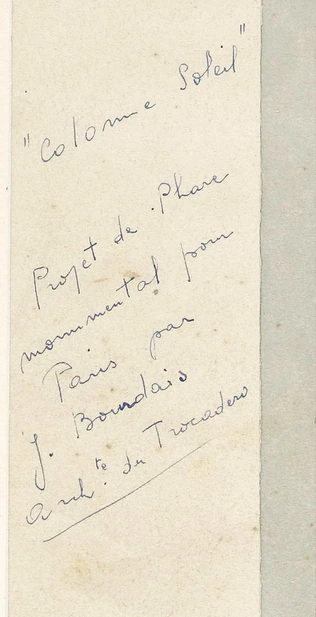 "Colonne Soleil"
Projet de Phare
monumental pour
Paris par
J. Bourdais
Arch.te du Trocadero